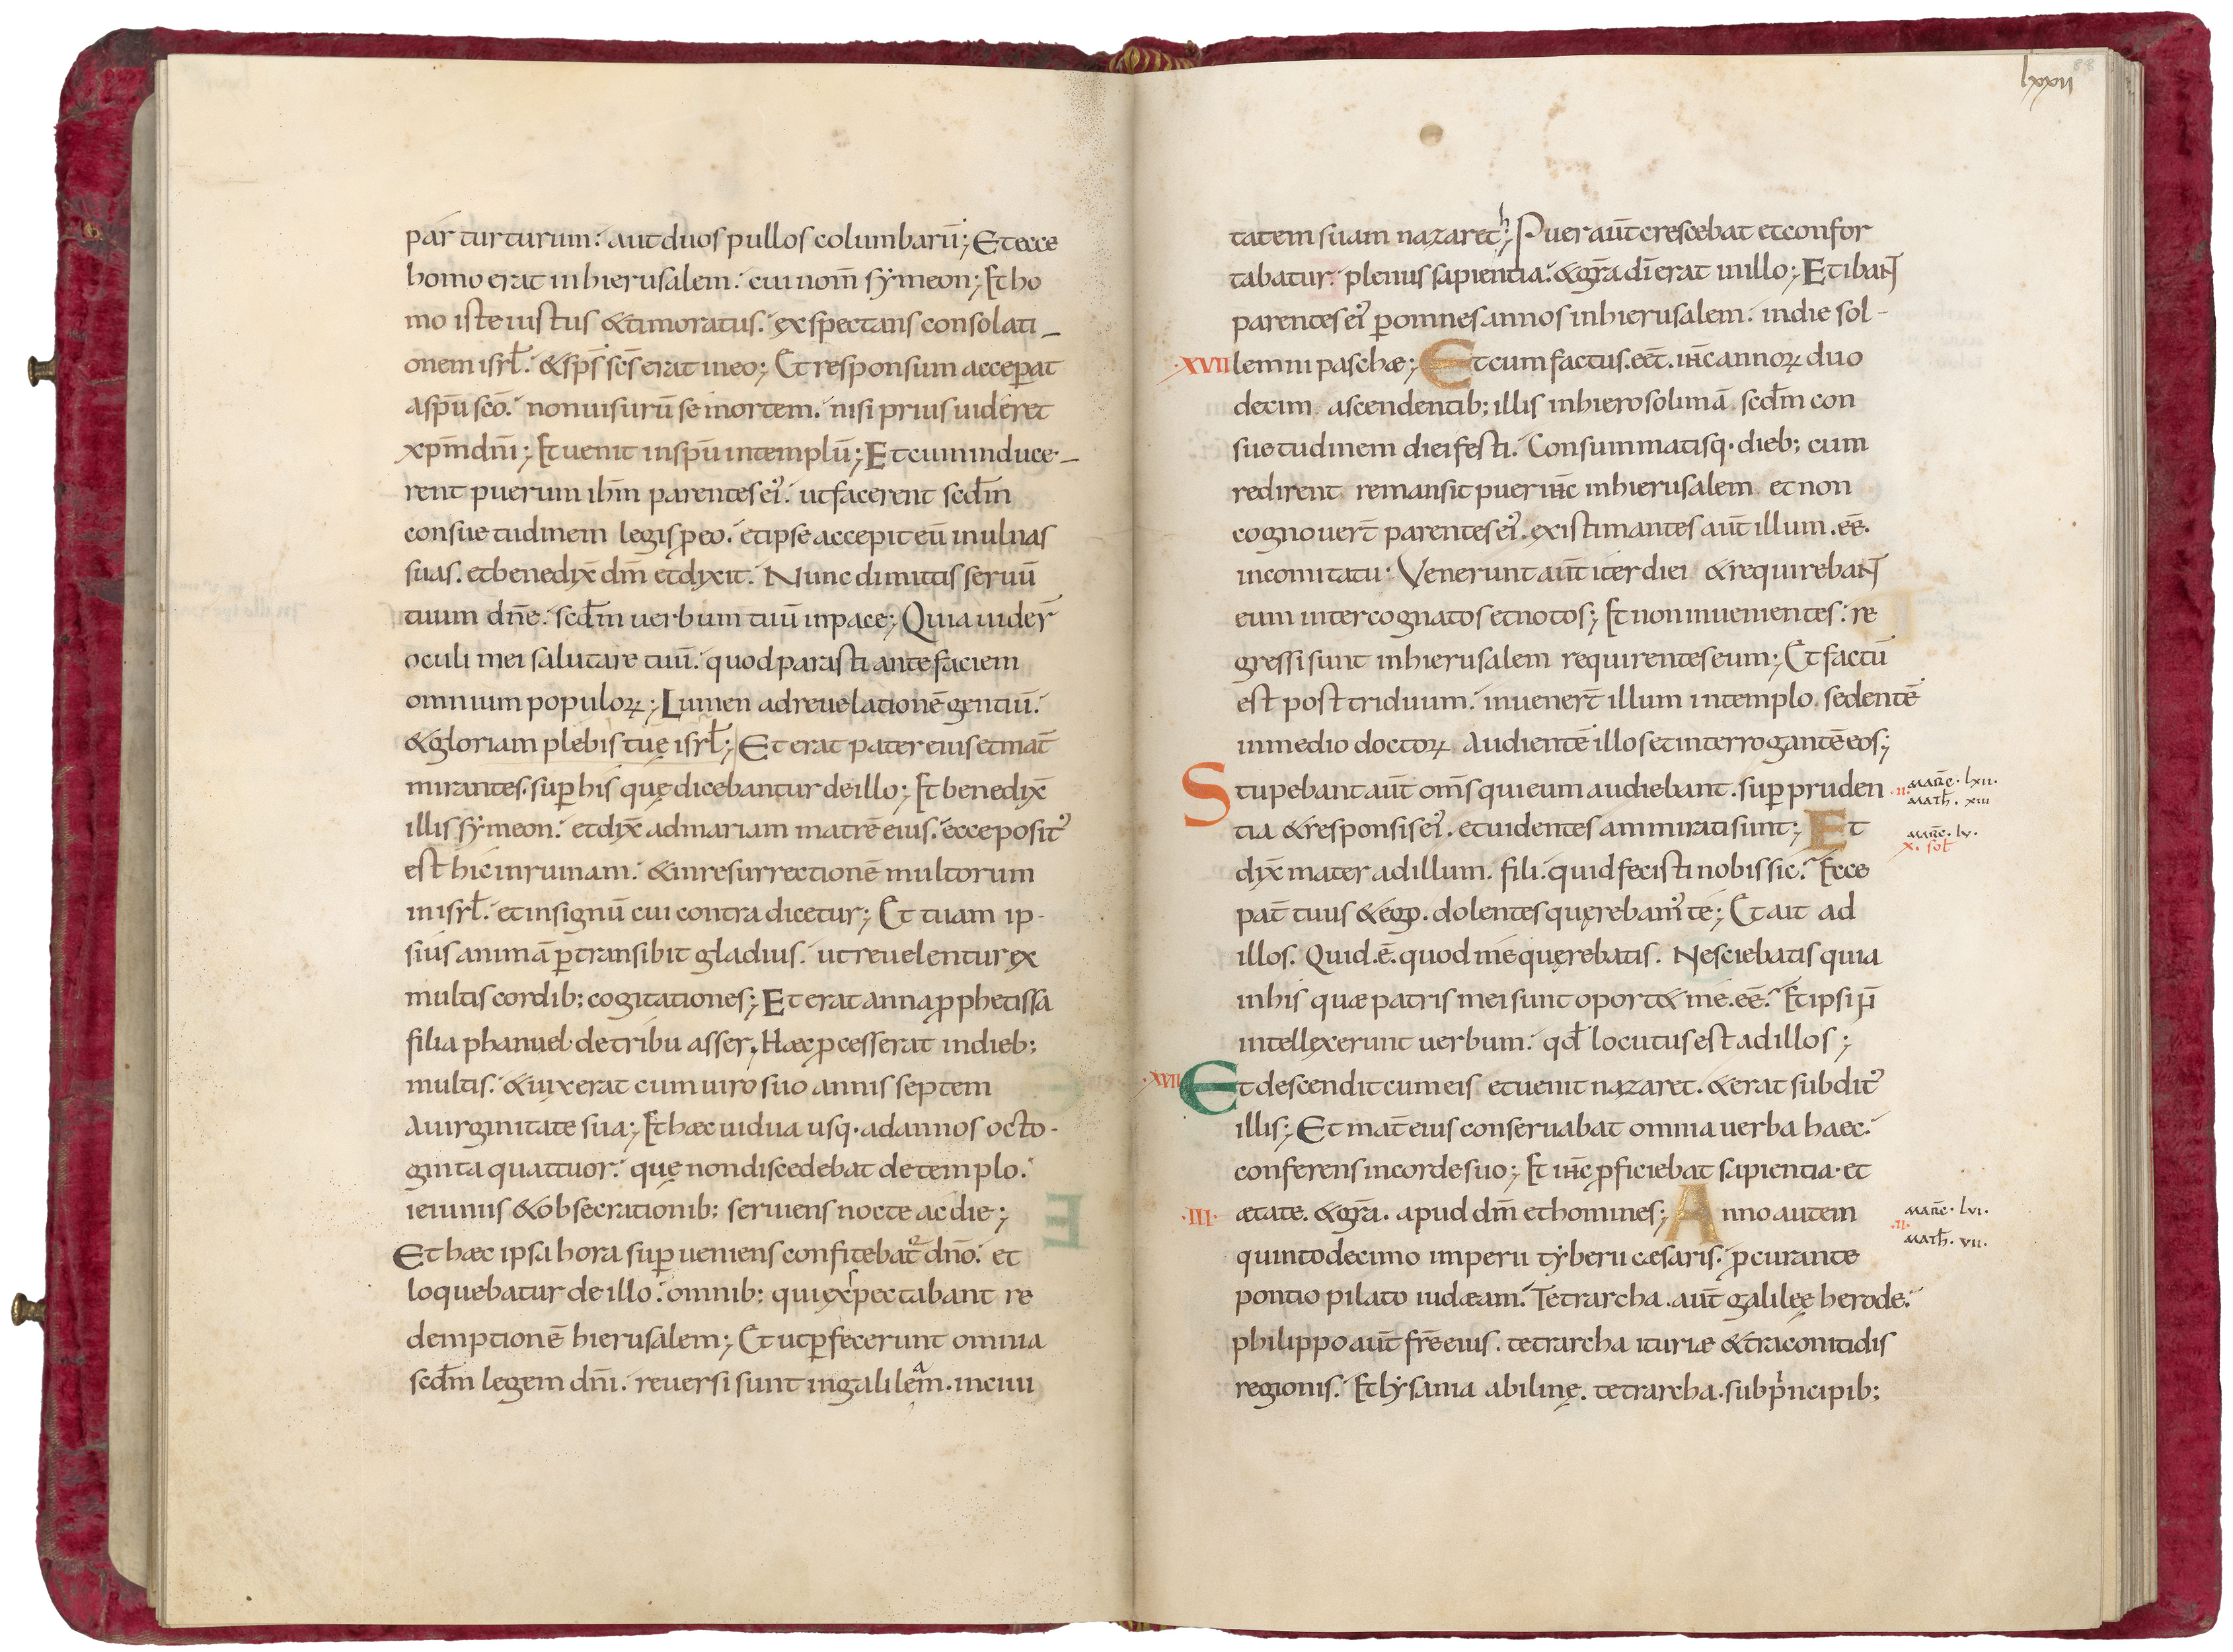 par turturum. aut duos pullos columbarū; Et ecce
homo erat in hierusalem. cui nom̄ symeon; Et ho
mo iste iustus & timoratus. exspectans consolati_
onem isrƚ. & sp̄s sc̄s erat in eo; Et responsum acceꝑat
a sp̄u sc̄o. non uisurū se mortem. nisi prius uideret
xp̄m dn̄i; Et uenit in sp̄u in templū; Et cum induce_
rent puerum ibi̅m parentes eiꝰ. ut facerent scd̄m
consuetudinem legis ꝓ eo. et ipse accepit eū in ulnas
suas. et benedix̄ dm̄ et dixit. Nunc dimittis seruū
tuum dn̄e. scd̄m uerbum tuū in pace; Quia uider̄
oculi mei salutare tuū. quod parasti ante faciem
omnium populoꝝ; Lumen ad reuelationē gentiū.
& gloriam plebis tuę isrƚ; Et erat pater eius et mat̄
mirantes. suꝑ his quę dicebantur de illo; Et benedix̄
illis symeon. et dix̄ ad mariam matrē eius. ecce positꝰ
est hic in ruinam. & in resurrectionē multorum
in isrƚ. et in signū cui contradicetur; Et tuam ip-
sius animā ꝑtransibit gladius. ut reuelentur ex
multis cordib; cogitationes; Et erat anna ꝓphetissa
filia phanuel. de tribu asser. Haec ꝓcesserat in dieb;
multis. & uixerat cum uiro suo annis septem
a uirginitate sua; Et haec uidua usq. ad annos octo-
ginta quattuor. quę non discedebat de templo.
ieiuniis & obsecrationib; seruiens nocte ac die;
Et haec ipsa hora suꝑueniens confitebat̄ dn̄o. et
loquebatur de illo. omnib; qui exspectabant re
demptionē hierusalem; Et ut ꝑfecerunt omnia
scd̄m legem dn̄i. reuersi sunt in galileam. in ciui
lxxii
88
tatem suam nazareth; Puer aūt crescebat et confor
tabatur. plenus sapientia. & gr̄a dī erat in illo; Et ibant
parentes eiꝰ ꝑ omnes annos in hierusalem. in die sol-
·XVII lemni paschae; Et cum factus. eēt. ih̄c annoꝝ duo
decim. ascendentib; illis in hierosolimā. scd̄m con
suetudinem diei festi. Consummatisq. dieb; cum
redirent. remansit puer ih̄c in hierusalem. et non
cognouer̄t parentes eiꝰ. existimantes aūt illum. eē.
in comitatu. Venerunt aūt iter diei. & requirebant
eum inter cognatos et notos; Et non inuenientes. re
gressi sunt in hierusalem requirentes eum; Et factū
est post triduum. inuener̄t illum in templo. sedentē
in medio doctoꝝ. Audientē illos et interrogantē eos;
Stupebant aūt om̄s qui eum audiebant. suꝑ pruden
·II· marc̄. lxii.
math̄. xiii
tia & responsis eiꝰ. et uidentes ammirati sunt; Et
marc̄. lv.
X. soƚ
dix̄ mater ad illum. fili. quid fecisti nobis sic. Ecce
pat̄ tuus & ego. dolentes quęrebamꝰ te; Et ait ad
illos. Quid. ē. quod me quęrebatis. Nesciebatis quia
in his quae patris mei sunt oport& me. eē. Et ipsi n̄
intellexerunt uerbum. qd̄ locutus est ad illos;
·XVII Et descendit cum eis et uenit nazaret. & erat subditꝰ
illis; Et mat̄ eius conseruabat omnia uerba haec.
conferens in corde suo; Et ih̄c ꝓficiebat sapientia. et
·III· aetate. & gr̄a. apud dm̄ et homines; Anno autem
marc̄. lvi.
·II·
math̄. vii.
quintodecimo imperii tyberii caesaris. ꝓcurante
pontio pilato iudaeam. Tetrarcha. aūt galileę herode.
philippo aūt fr̄e eius. tetrarcha ituriae & traconitidis
regionis. Et lysania abilinę. tetrarcha. sub principib;